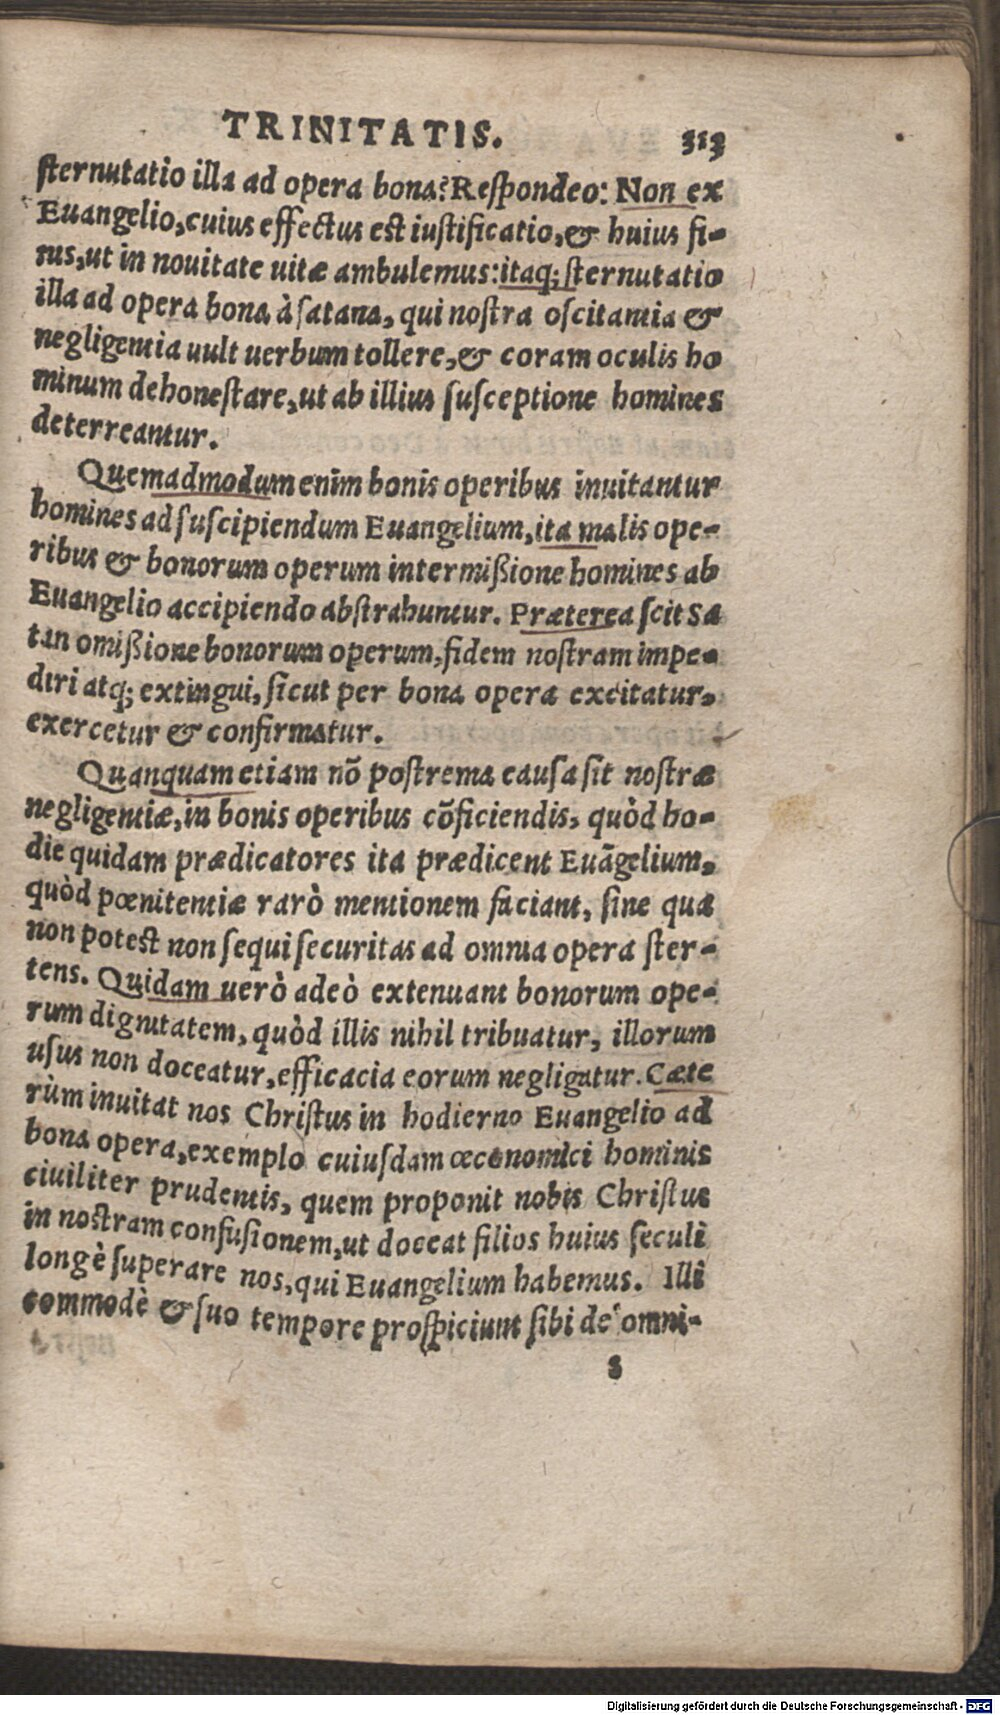 TRINITATIS. 313
sternutatio illa ad opera bona? Respondeo: Non ex
Euangelio, cuius effectus est iustificatio, & huius fi-
nis, ut in nouitate uitæ ambulemus: itaq; sternutatio
illa ad opera bona à satana, qui nostra oscitantia &
negligentia uult uerbum tollere, & coram oculis ho
minum dehonestare, ut ab illius susceptione homines
deterreantur.
Quemadmodum enim bonis operibus inuitantur
homines ad suscipiendum Euangelium, ita malis ope-
ribus & bonorum operum intermißione homines ab
Euangelio accipiendo abstrahuntur. Præterea scit Sa
tan omißione bonorum operum, fidem nostram impe-
diri atq; extingui, sicut per bona opera excitatur,
exercetur & confirmatur.
Quanquam etiam nõ postrema causa sit nostræ
negligentiæ, in bonis operibus cõficiendis, quòd ho-
die quidam prædicatores ita prædicent Euãgelium,
quòd pœnitentiæ rarò mentionem faciant, sine qua
non potest non sequi securitas ad omnia opera ster-
tens. Quidam uerò adeò extenuant bonorum ope-
rum dignitatem, quòd illis nihil tribuatur, illorum
usus non doceatur, efficacia eorum negligatur. Cæte
rùm inuitat nos Christus in hodierno Euangelio ad
bona opera, exemplo cuiusdam œconomici hominis
ciuiliter prudentis, quem proponit nobis Christus
in nostram confusionem, ut doceat filios huius seculi
longè superare nos, qui Euangelium habemus. Illi
commodè & suo tempore prospiciunt sibi de omni-
s
Digitalisierung gefördert durch die Deutsche Forschungsgemeinschaft - DFG